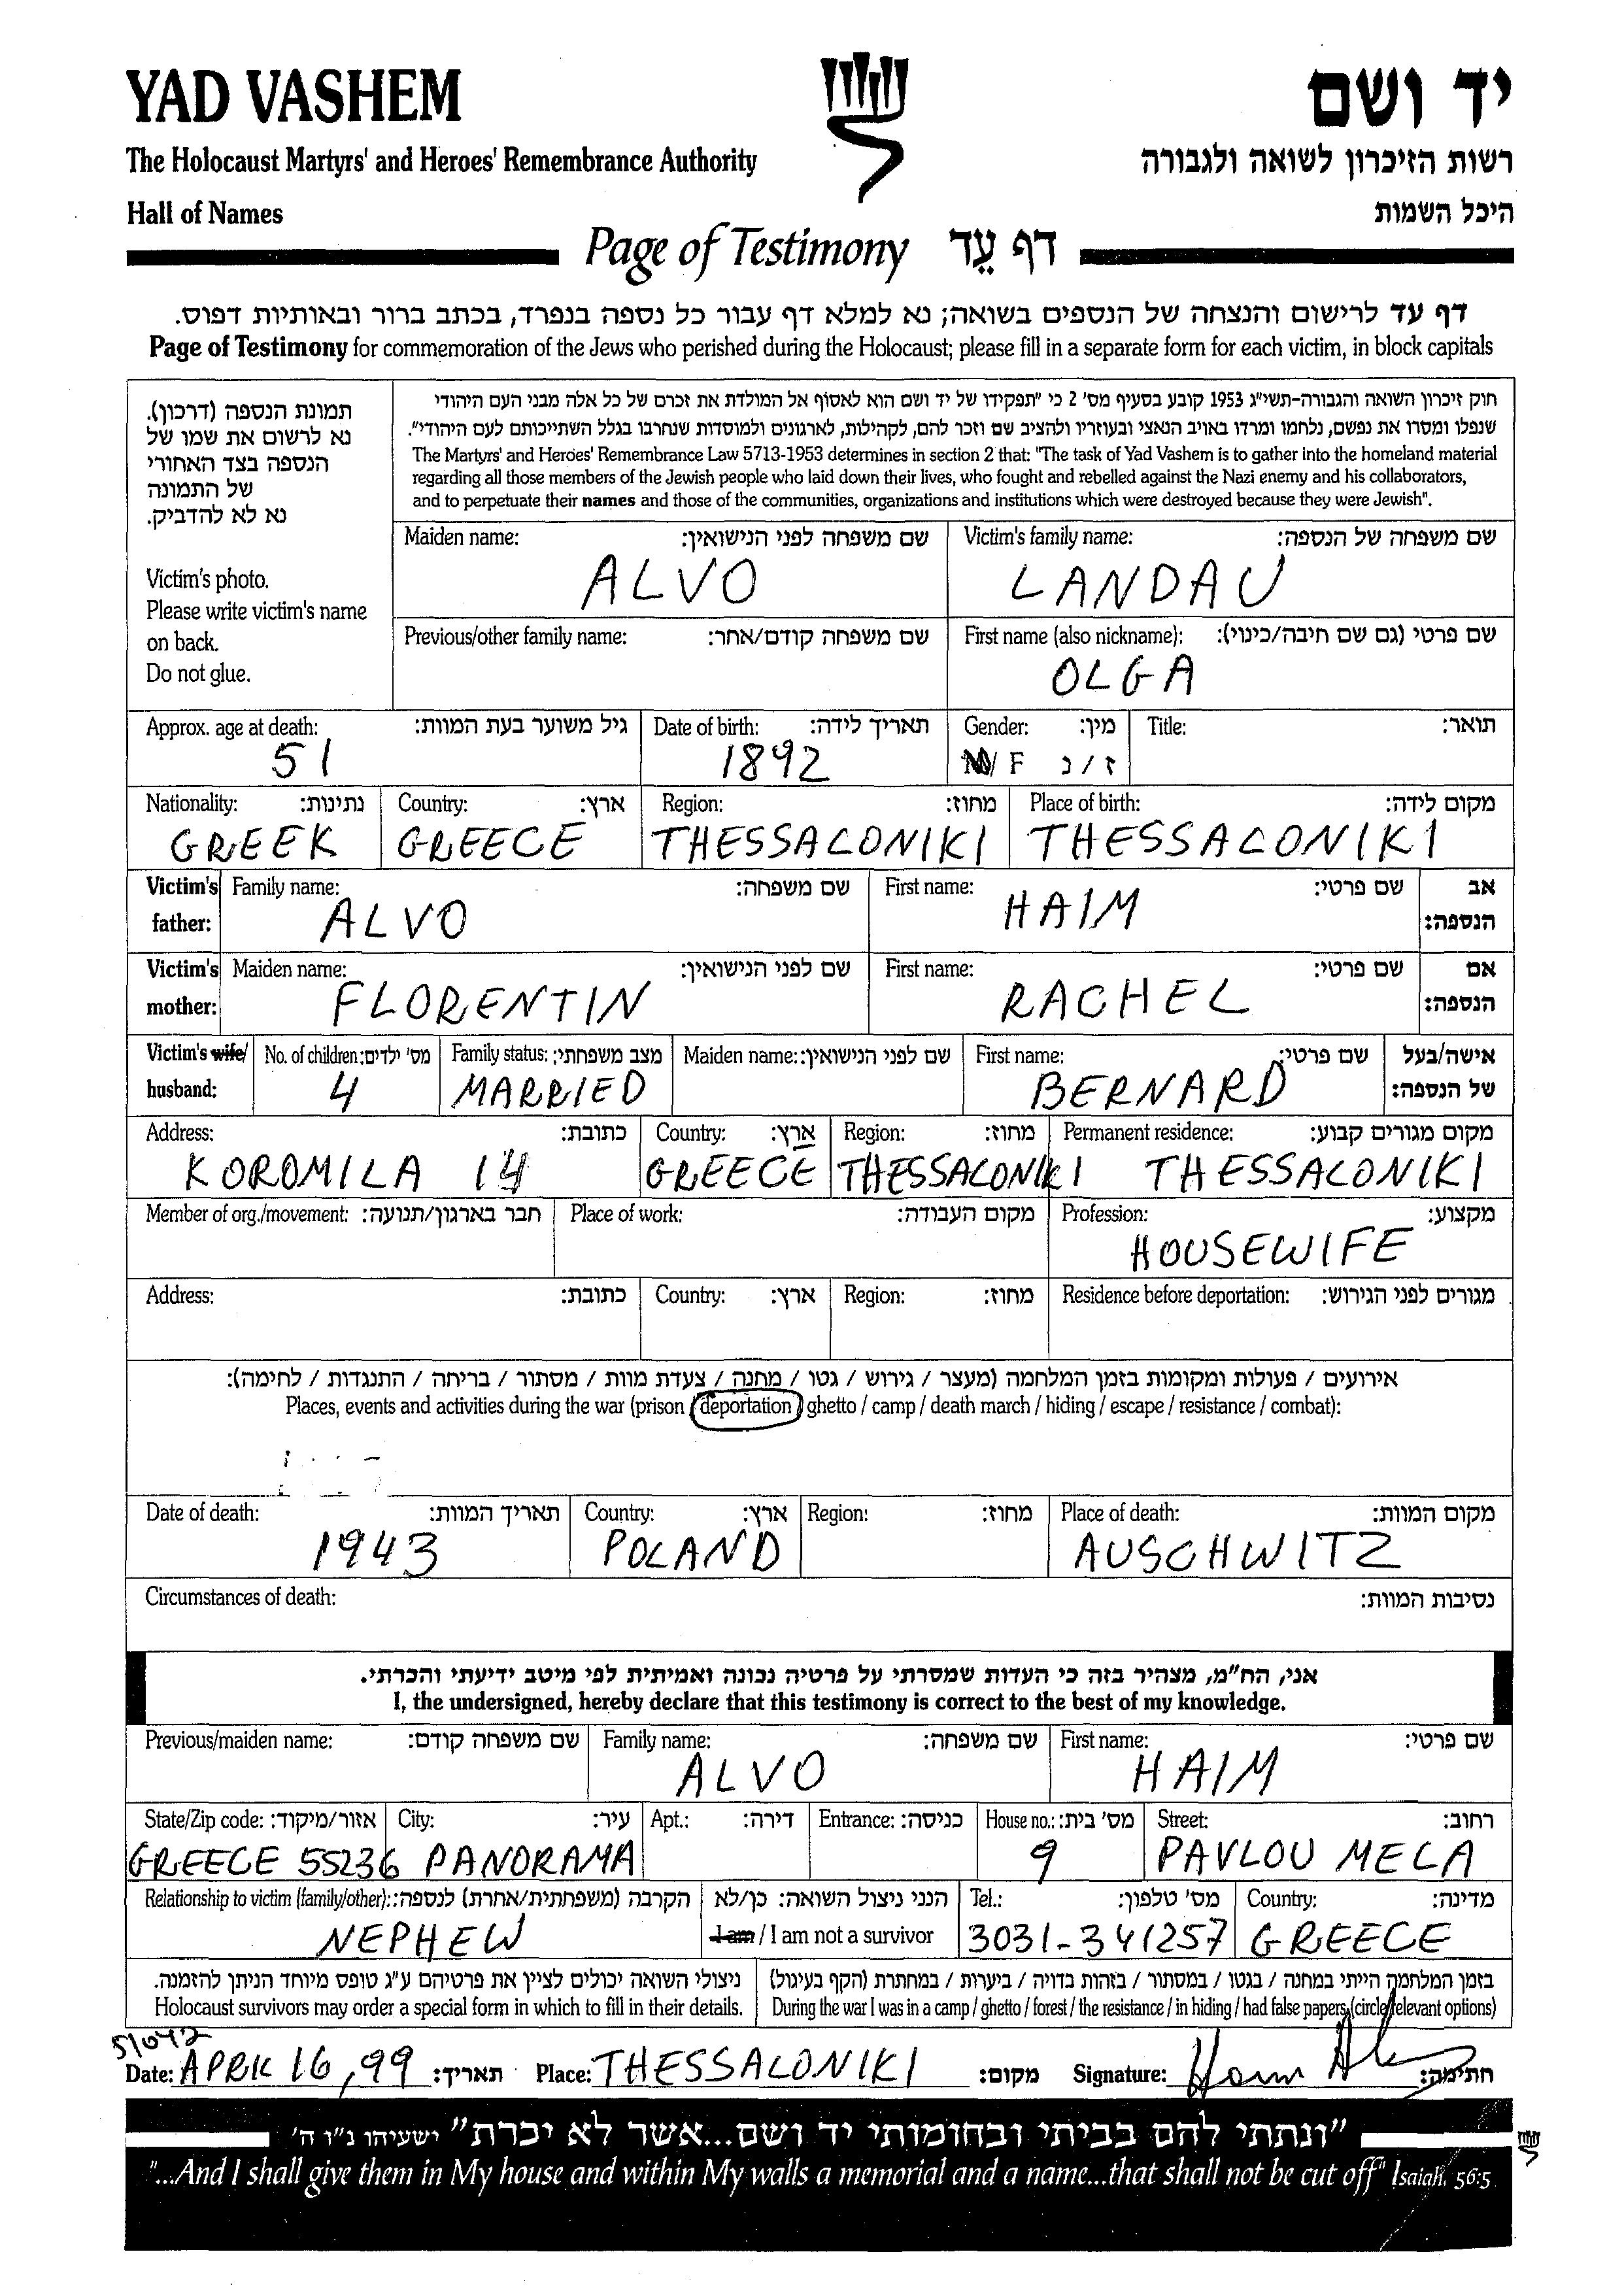 YAD VASHEM
יד ושם
The Holocaust Martyrs' and Heroes' Remembrance Authority
רשות הזיכרון לשואה ולגבורה
Hall of Names
היכל השמות
Page of Testimony דף עֵד
דף עד לרישום והנצחה של הנספים בשואה; נא למלא דף עבור כל נספה בנפרד, בכתב ברור ובאותיות דפוס.
Page of Testimony for commemoration of the Jews who perished during the Holocaust; please fill in a separate form for each victim, in block capitals
תמונת הנספה (דרכון).
נא לרשום את שמו של
הנספה בצד האחורי
של התמונה
נא לא להדביק.
Victim's photo.
Please write victim's name
on back.
Do not glue.
חוק זיכרון השואה והגבורה-תשי"ג 1953 קובע בסעיף מס' 2 כי "תפקידו של יד ושם הוא לאסוף אל המולדת את זכרם של כל אלה מבני העם היהודי
שנפלו ומסרו את נפשם, נלחמו ומרדו באויב הנאצי ובעוזריו ולהציב שם וזכר להם, לקהילות, לארגונים ולמוסדות שנחרבו בגלל השתייכותם לעם היהודי".
The Martyrs' and Heroes' Remembrance Law 5713-1953 determines in section 2 that: "The task of Yad Vashem is to gather into the homeland material
regarding all those members of the Jewish people who laid down their lives, who fought and rebelled against the Nazi enemy and his collaborators,
and to perpetuate their names and those of the communities, organizations and institutions which were destroyed because they were Jewish".
Maiden name: שם משפחה לפני הנישואין: Victim's family name: שם משפחה של הנספה:
ALVO LANDAU
Previous/other family name: שם משפחה קודם/אחר: First name (also nickname): שם פרטי (גם שם חיבה/כינוי):
OLGA
Approx. age at death: גיל משוער בעת המוות: Date of birth: תאריך לידה: Gender: מין: Title: תואר:
51 1892 M/ F ז / נ
Nationality: נתינות: Country: ארץ: Region: מחוז: Place of birth: מקום לידה:
GREEK GREECE THESSALONIKI THESSALONIKI
Victim's Family name: שם משפחה: First name: שם פרטי: אב
father: ALVO HAIM הנספה:
Victim's Maiden name: שם לפני הנישואין: First name: שם פרטי: אם
mother: FLORENTIN RACHEL הנספה:
Victim's wife/ No. of children: מס' ילדים: Family status: מצב משפחתי: Maiden name: שם לפני הנישואין: First name: שם פרטי: אישה/בעל
husband: 4 MARRIED BERNARD של הנספה:
Address: כתובת: Country: ארץ: Region: מחוז: Permanent residence: מקום מגורים קבוע:
KOROMILA 14 GREECE THESSALONIKI THESSALONIKI
Member of org./movement: חבר בארגון/תנועה: Place of work: מקום העבודה: Profession: מקצוע:
HOUSEWIFE
Address: כתובת: Country: ארץ: Region: מחוז: Residence before deportation: מגורים לפני הגירוש:
אירועים / פעולות ומקומות בזמן המלחמה (מעצר / גירוש / גטו / מחנה / צעדת מוות / מסתור / בריחה / התנגדות / לחימה):
Places, events and activities during the war (prison / deportation / ghetto / camp / death march / hiding / escape / resistance / combat):
Date of death: תאריך המוות: Country: ארץ: Region: מחוז: Place of death: מקום המוות:
1943 POLAND AUSCHWITZ
Circumstances of death: נסיבות המוות:
אני, הח"מ, מצהיר בזה כי העדות שמסרתי על פרטיה נכונה ואמיתית לפי מיטב ידיעתי והכרתי.
I, the undersigned, hereby declare that this testimony is correct to the best of my knowledge.
Previous/maiden name: שם משפחה קודם: Family name: שם משפחה: First name: שם פרטי:
ALVO HAIM
State/Zip code: אזור/מיקוד: City: עיר: Apt.: דירה: Entrance: כניסה: House no.: מס' בית: Street: רחוב:
GREECE 55236 PANORAMA 9 PAVLOU MELA
Relationship to victim (family/other): הקרבה (משפחתית/אחרת) לנספה: הנני ניצול השואה: כן/לא Tel.: מס' טלפון: Country: מדינה:
NEPHEW I am / I am not a survivor 3031-341257 GREECE
ניצולי השואה יכולים לציין את פרטיהם ע"ג טופס מיוחד הניתן להזמנה. בזמן המלחמה הייתי במחנה / בגטו / במסתור / בזהות בדויה / ביערות / במחתרת (הקף בעיגול)
Holocaust survivors may order a special form in which to fill in their details. During the war I was in a camp / ghetto / forest / the resistance / in hiding / had false papers (circle relevant options)
51042
Date: APRIL 16, 99 תאריך: Place: THESSALONIKI מקום: Signature: חתימה:
"ונתתי להם בביתי ובחומותי יד ושם...אשר לא יכרת" ישעיהו נ"ו ה'
"...And I shall give them in My house and within My walls a memorial and a name...that shall not be cut off" Isaiah, 56:5